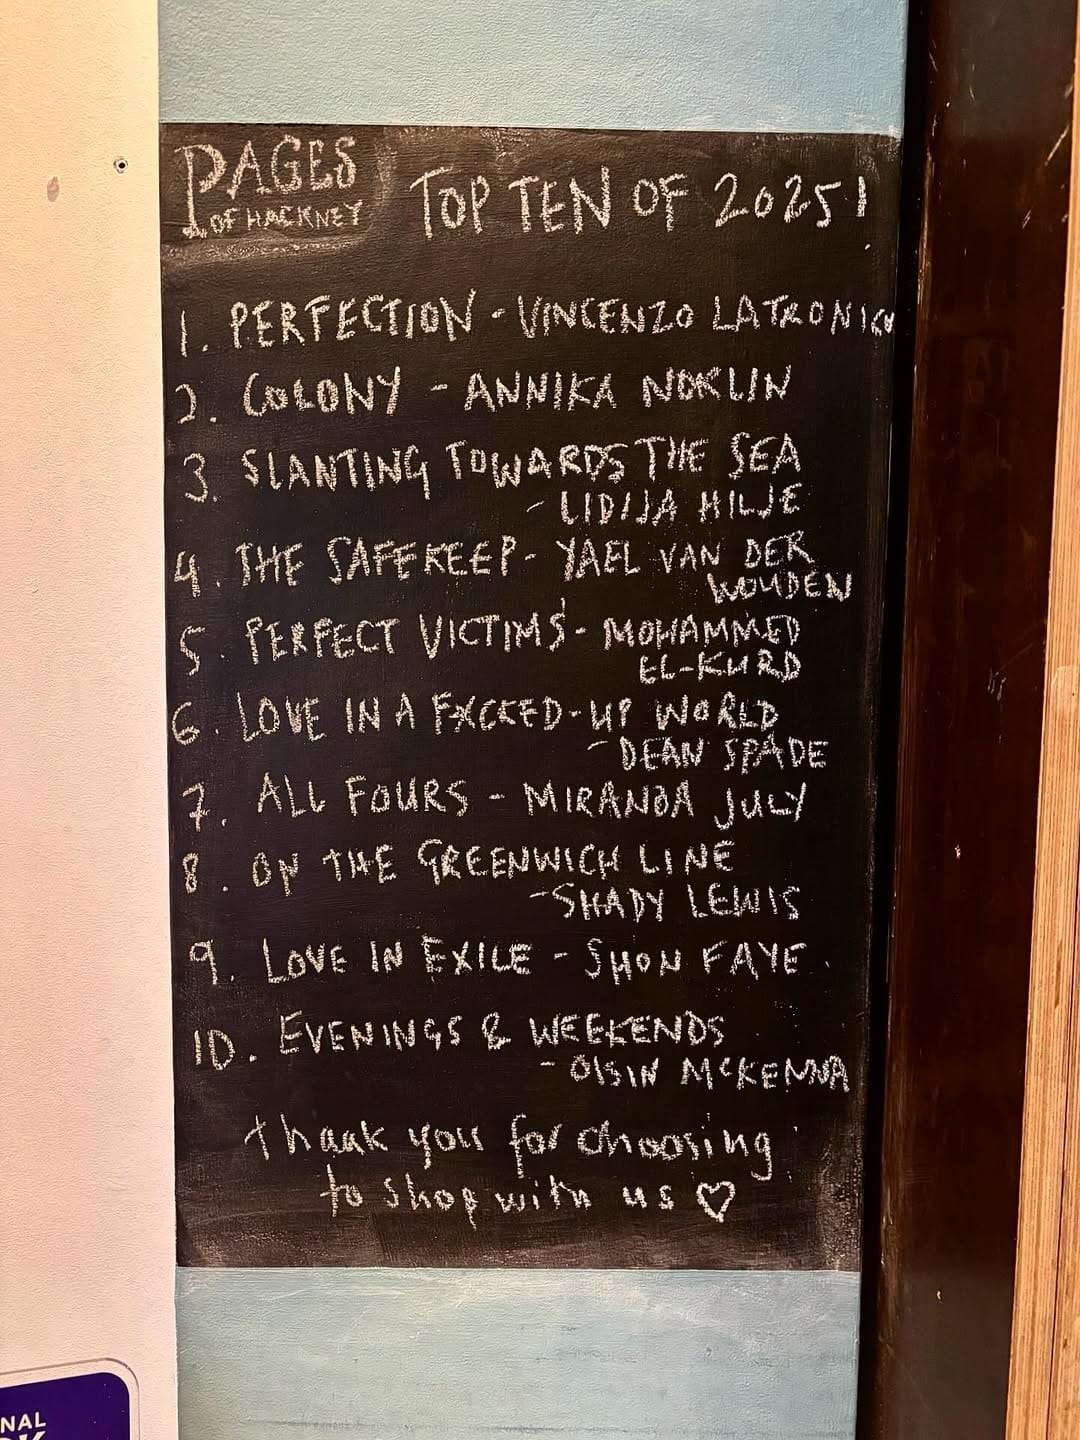 PAGES
OF HACKNEY
TOP TEN OF 2025!
1. PERFECTION - VINCENZO LATRONICO
2. COLONY - ANNIKA NORLIN
3. SLANTING TOWARDS THE SEA
- LIDIJA HILJE
4. THE SAFEKEEP - YAEL VAN DER
WOUDEN
5. PERFECT VICTIMS - MOHAMMED
EL-KURD
6. LOVE IN A FXCKED-UP WORLD
- DEAN SPADE
7. ALL FOURS - MIRANDA JULY
8. ON THE GREENWICH LINE
- SHADY LEWIS
9. LOVE IN EXILE - SHON FAYE
10. EVENINGS & WEEKENDS
- OISIN MCKENNA
thank you for choosing
to shop with us ♡
NAL